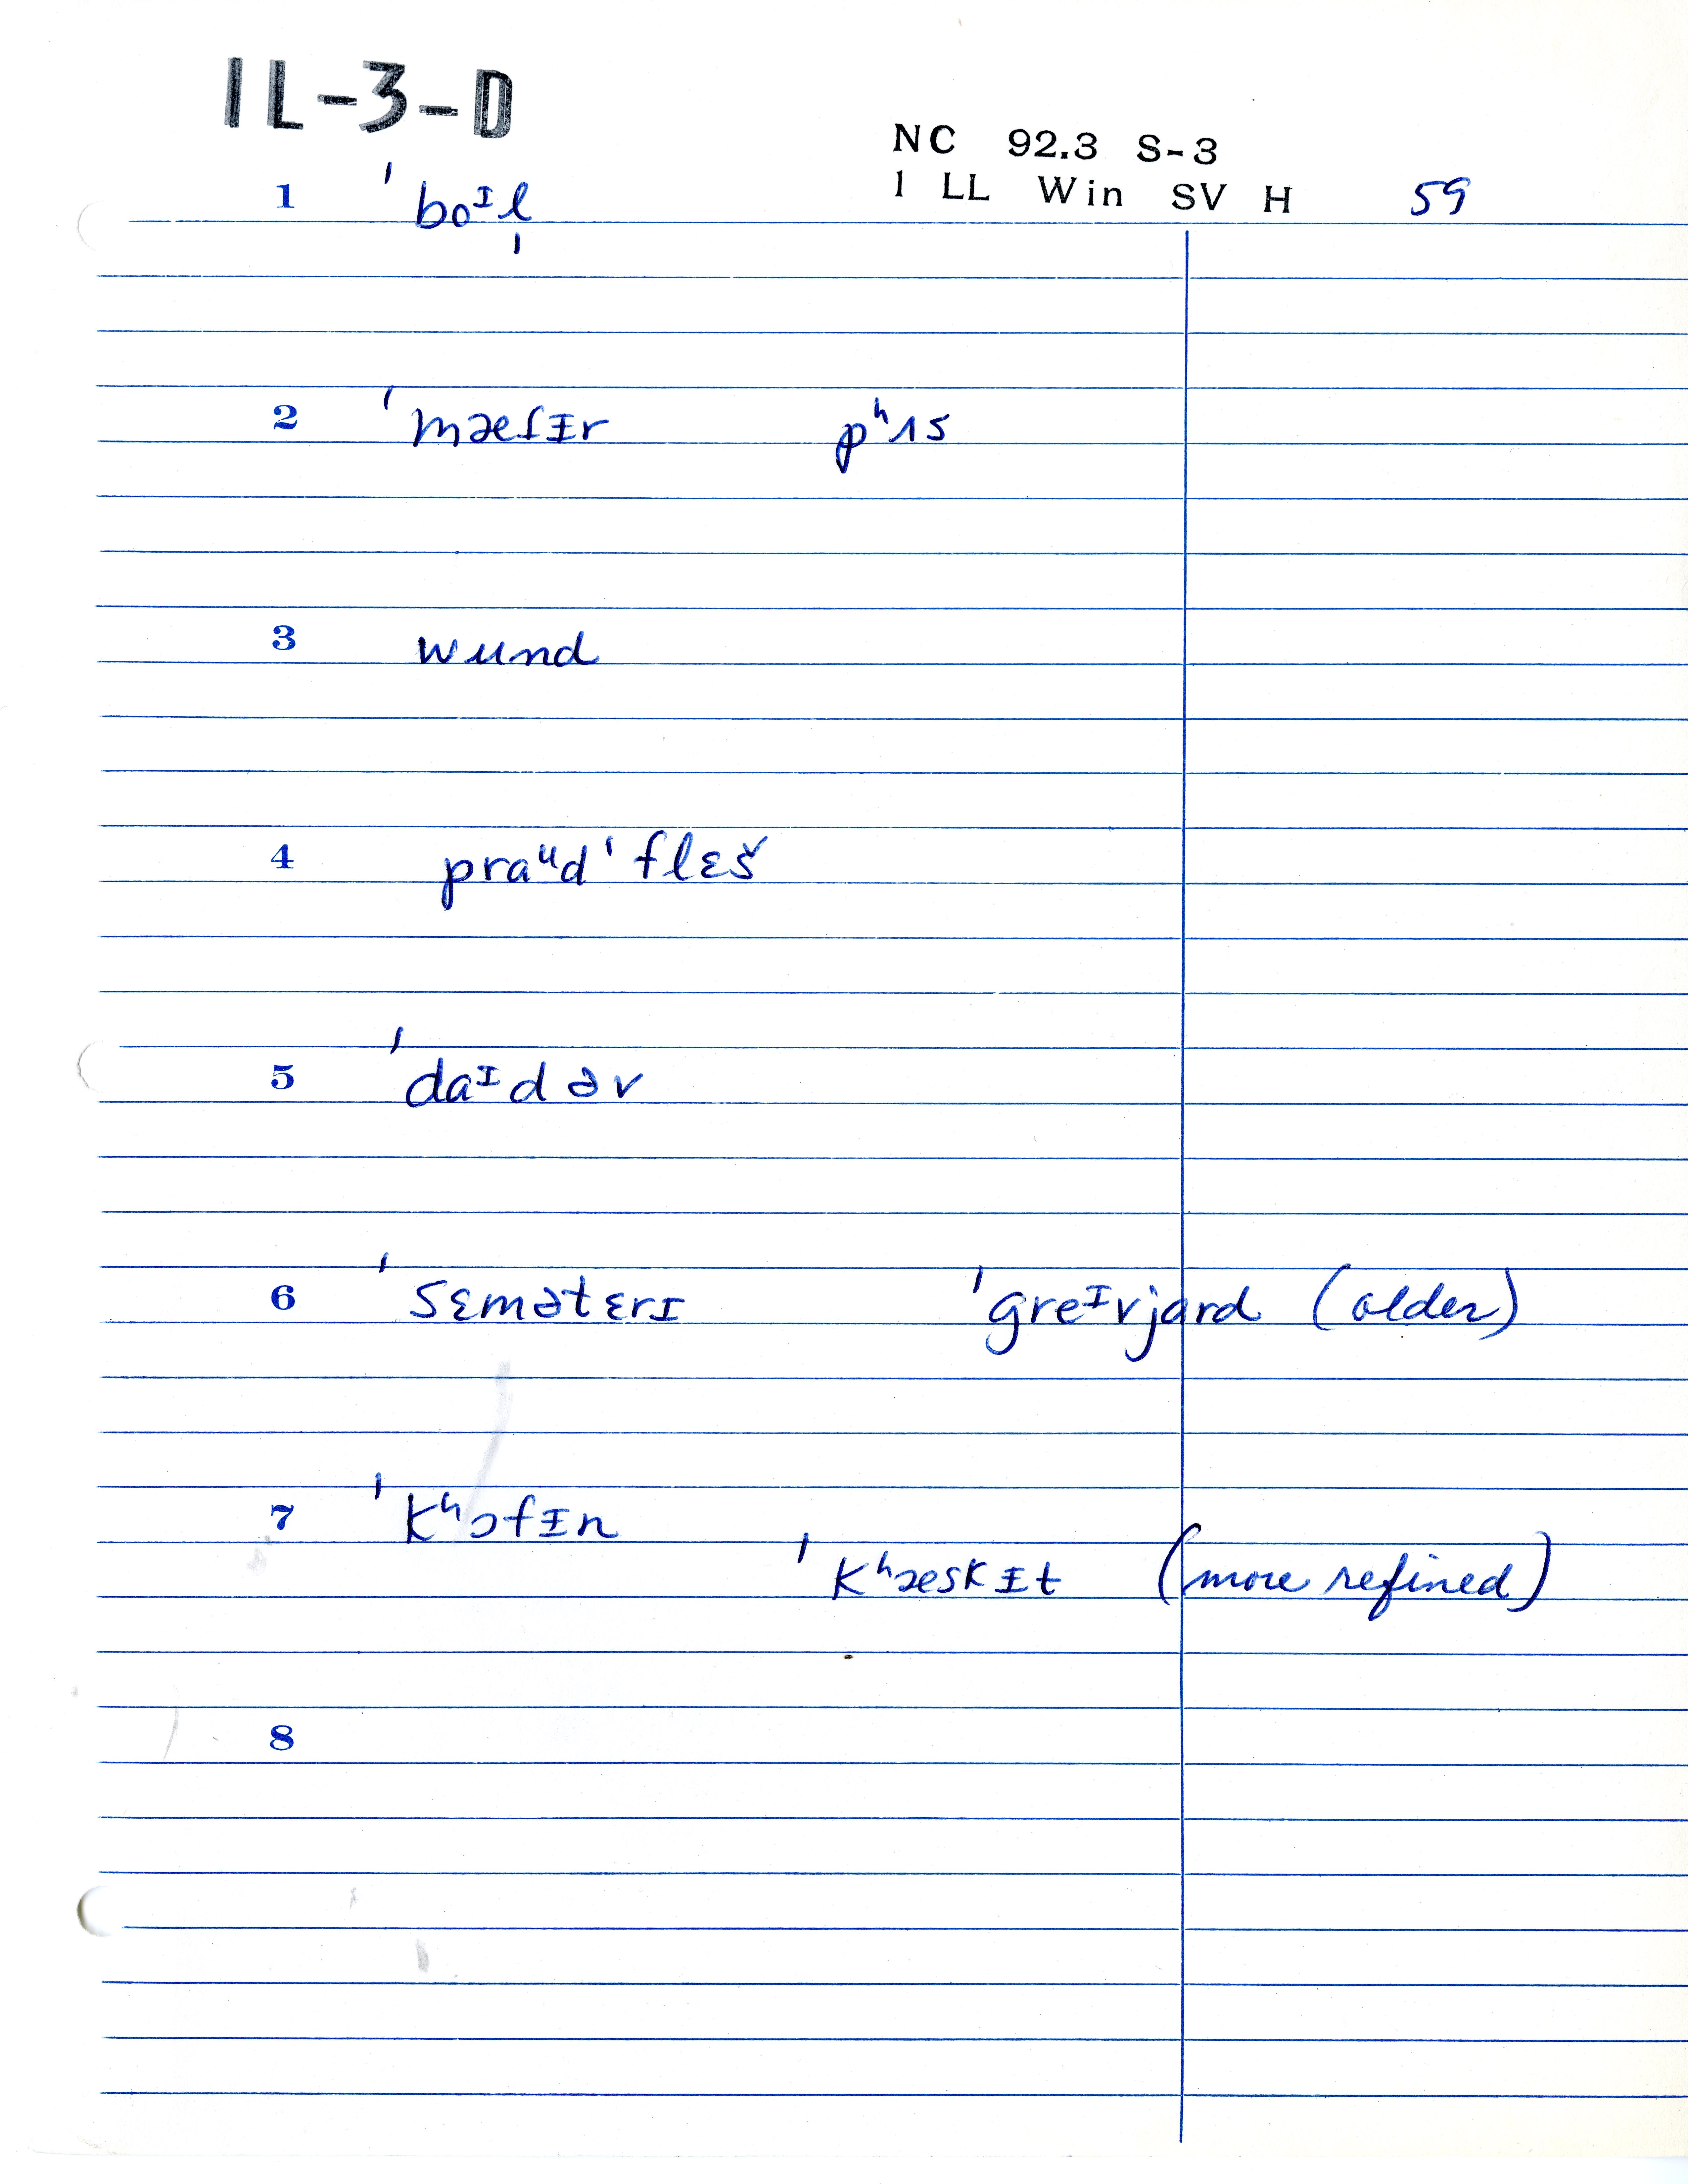 IL-3-D
NC 92.3 S-3
1 LL Win SV H 59
1 ˈboᶦl̩
2 ˈmæſɪr pʰʌs
3 wund
4 praᵘdˈflɛš
5 ˈdaᶦdəv
6 ˈsɛmətɛrɪ ˈgreᶦvjard (older)
7 ˈkʰɔfɪn
ˈkʰæskɪt (more refined)
8